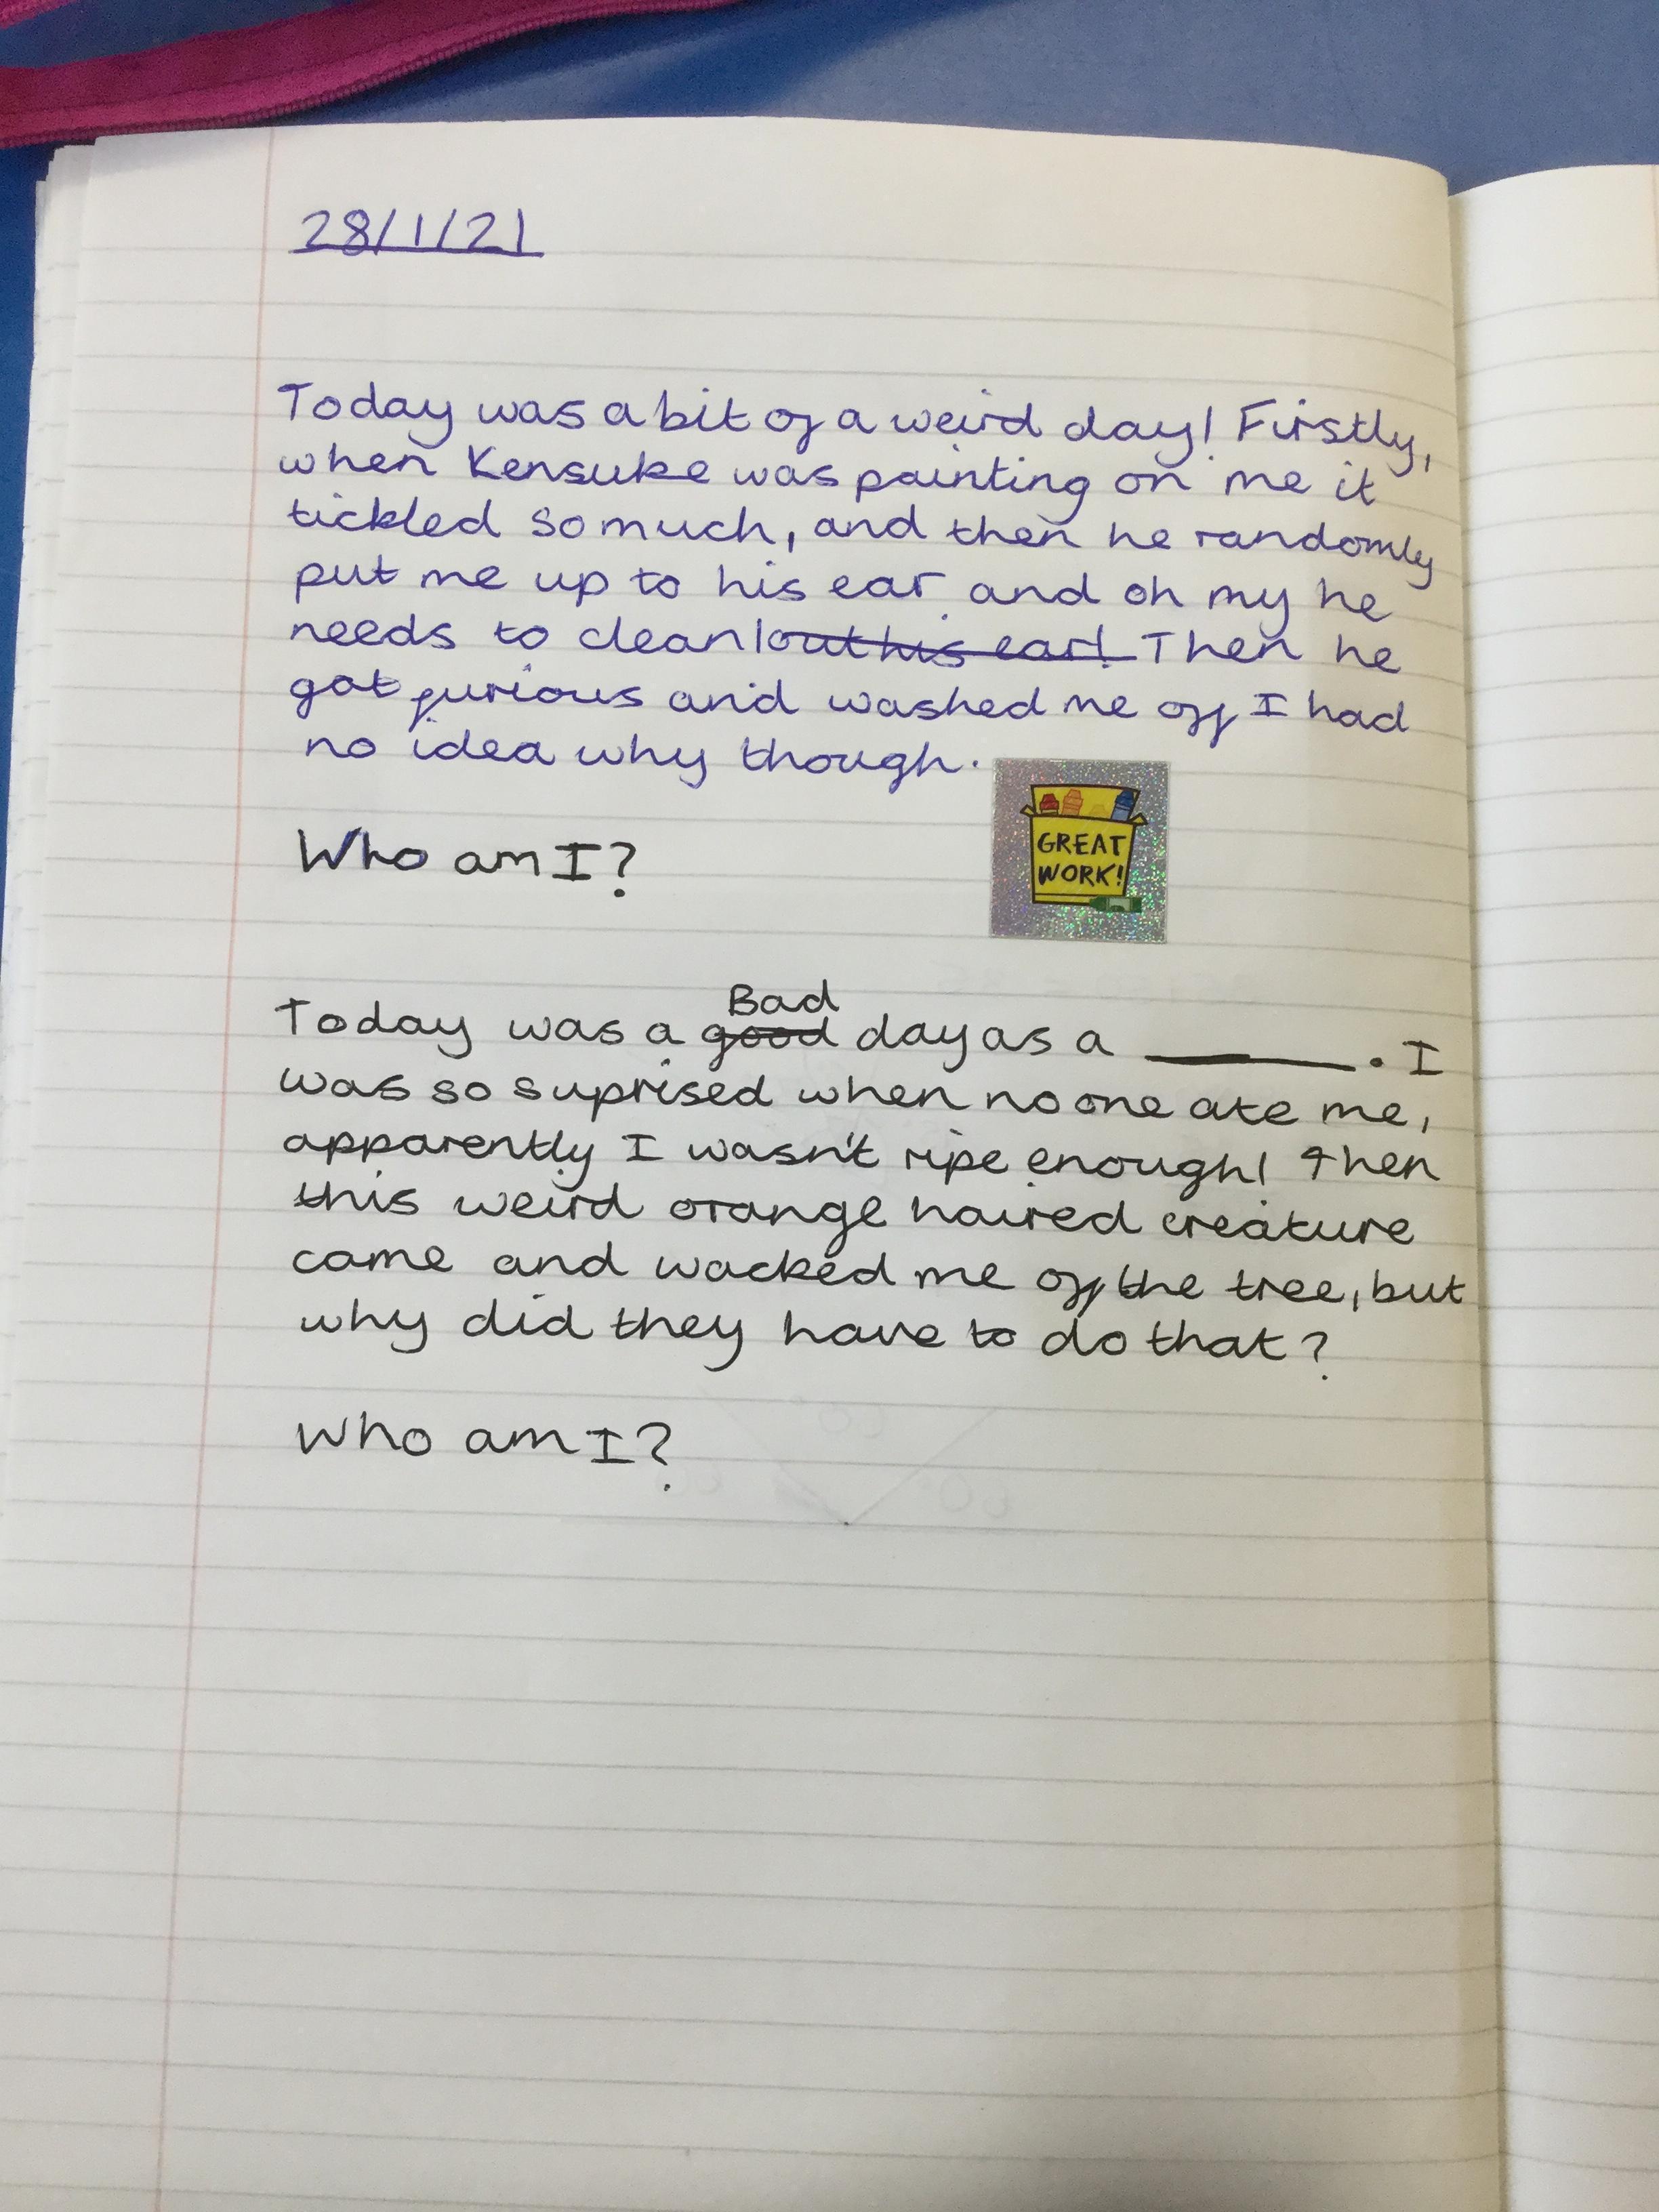 28/1/21
Today was a bit of a weird day! Firstly,
when Kensuke was painting on me it
tickled so much, and then he randomly
put me up to his ear and oh my he
needs to clean out his ear! Then he
got furious and washed me off I had
no idea why though.
GREAT
WORK!
Who am I?
Bad
Today was a good day as a ______. I
was so suprised when no one ate me,
apparently I wasn't ripe enough! Then
this weird orange haired creature
came and wacked me off the tree, but
why did they have to do that?
Who am I?